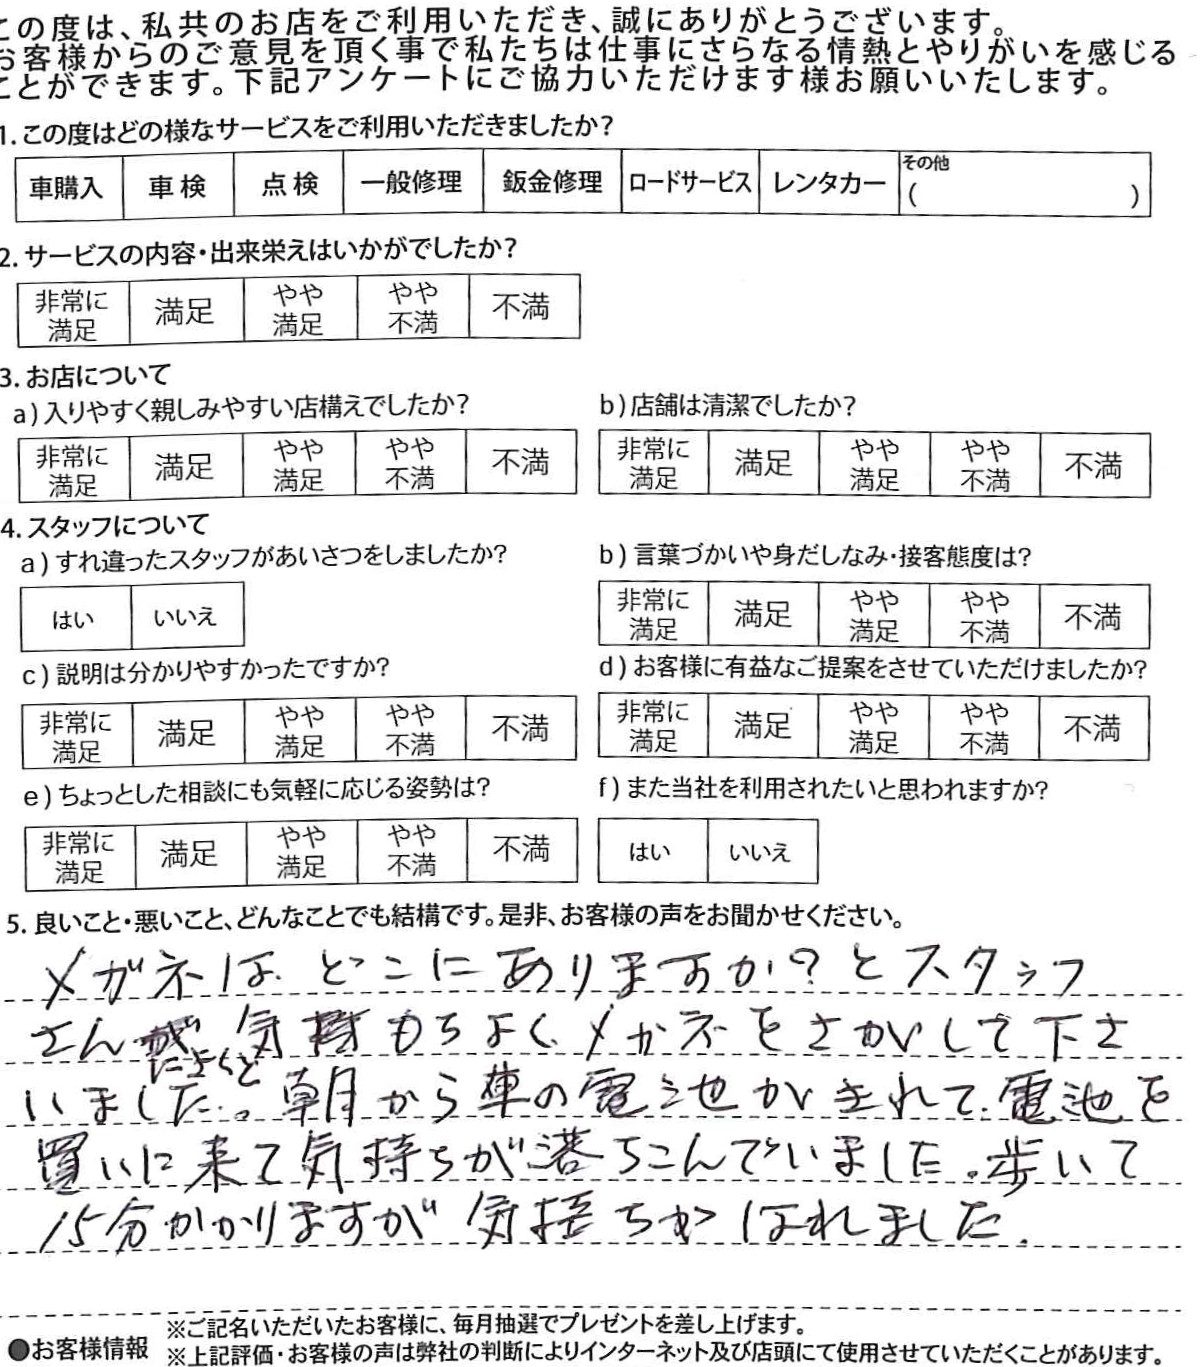 この度は、私共のお店をご利用いただき、誠にありがとうございます。
お客様からのご意見を頂く事で私たちは仕事にさらなる情熱とやりがいを感じる
ことができます。下記アンケートにご協力いただけます様お願いいたします。
1. この度はどの様なサービスをご利用いただきましたか?
車購入 車検 点検 一般修理 鈑金修理 ロードサービス レンタカー その他
( )
2. サービスの内容・出来栄えはいかがでしたか?
非常に満足 満足 やや満足 やや不満 不満
3. お店について
a) 入りやすく親しみやすい店構えでしたか? b) 店舗は清潔でしたか?
非常に満足 満足 やや満足 やや不満 不満 非常に満足 満足 やや満足 やや不満 不満
4. スタッフについて
a) すれ違ったスタッフがあいさつをしましたか? b) 言葉づかいや身だしなみ・接客態度は?
はい いいえ 非常に満足 満足 やや満足 やや不満 不満
c) 説明は分かりやすかったですか? d) お客様に有益なご提案をさせていただけましたか?
非常に満足 満足 やや満足 やや不満 不満 非常に満足 満足 やや満足 やや不満 不満
e) ちょっとした相談にも気軽に応じる姿勢は? f) また当社を利用されたいと思われますか?
非常に満足 満足 やや満足 やや不満 不満 はい いいえ
5. 良いこと・悪いこと、どんなことでも結構です。是非、お客様の声をお聞かせください。
メガネはどこにありますか?とスタッフ
さん 気持もちよくメガネをさがして下さ
いました。朝から車の電池がきれて電池を
買いに来て気持ちが落ちこんでいました。歩いて
15分かかりますが気持ちがはれました.
●お客様情報 ※ご記名いただいたお客様に、毎月抽選でプレゼントを差し上げます。
※上記評価・お客様の声は弊社の判断によりインターネット及び店頭にて使用させていただくことがあります。